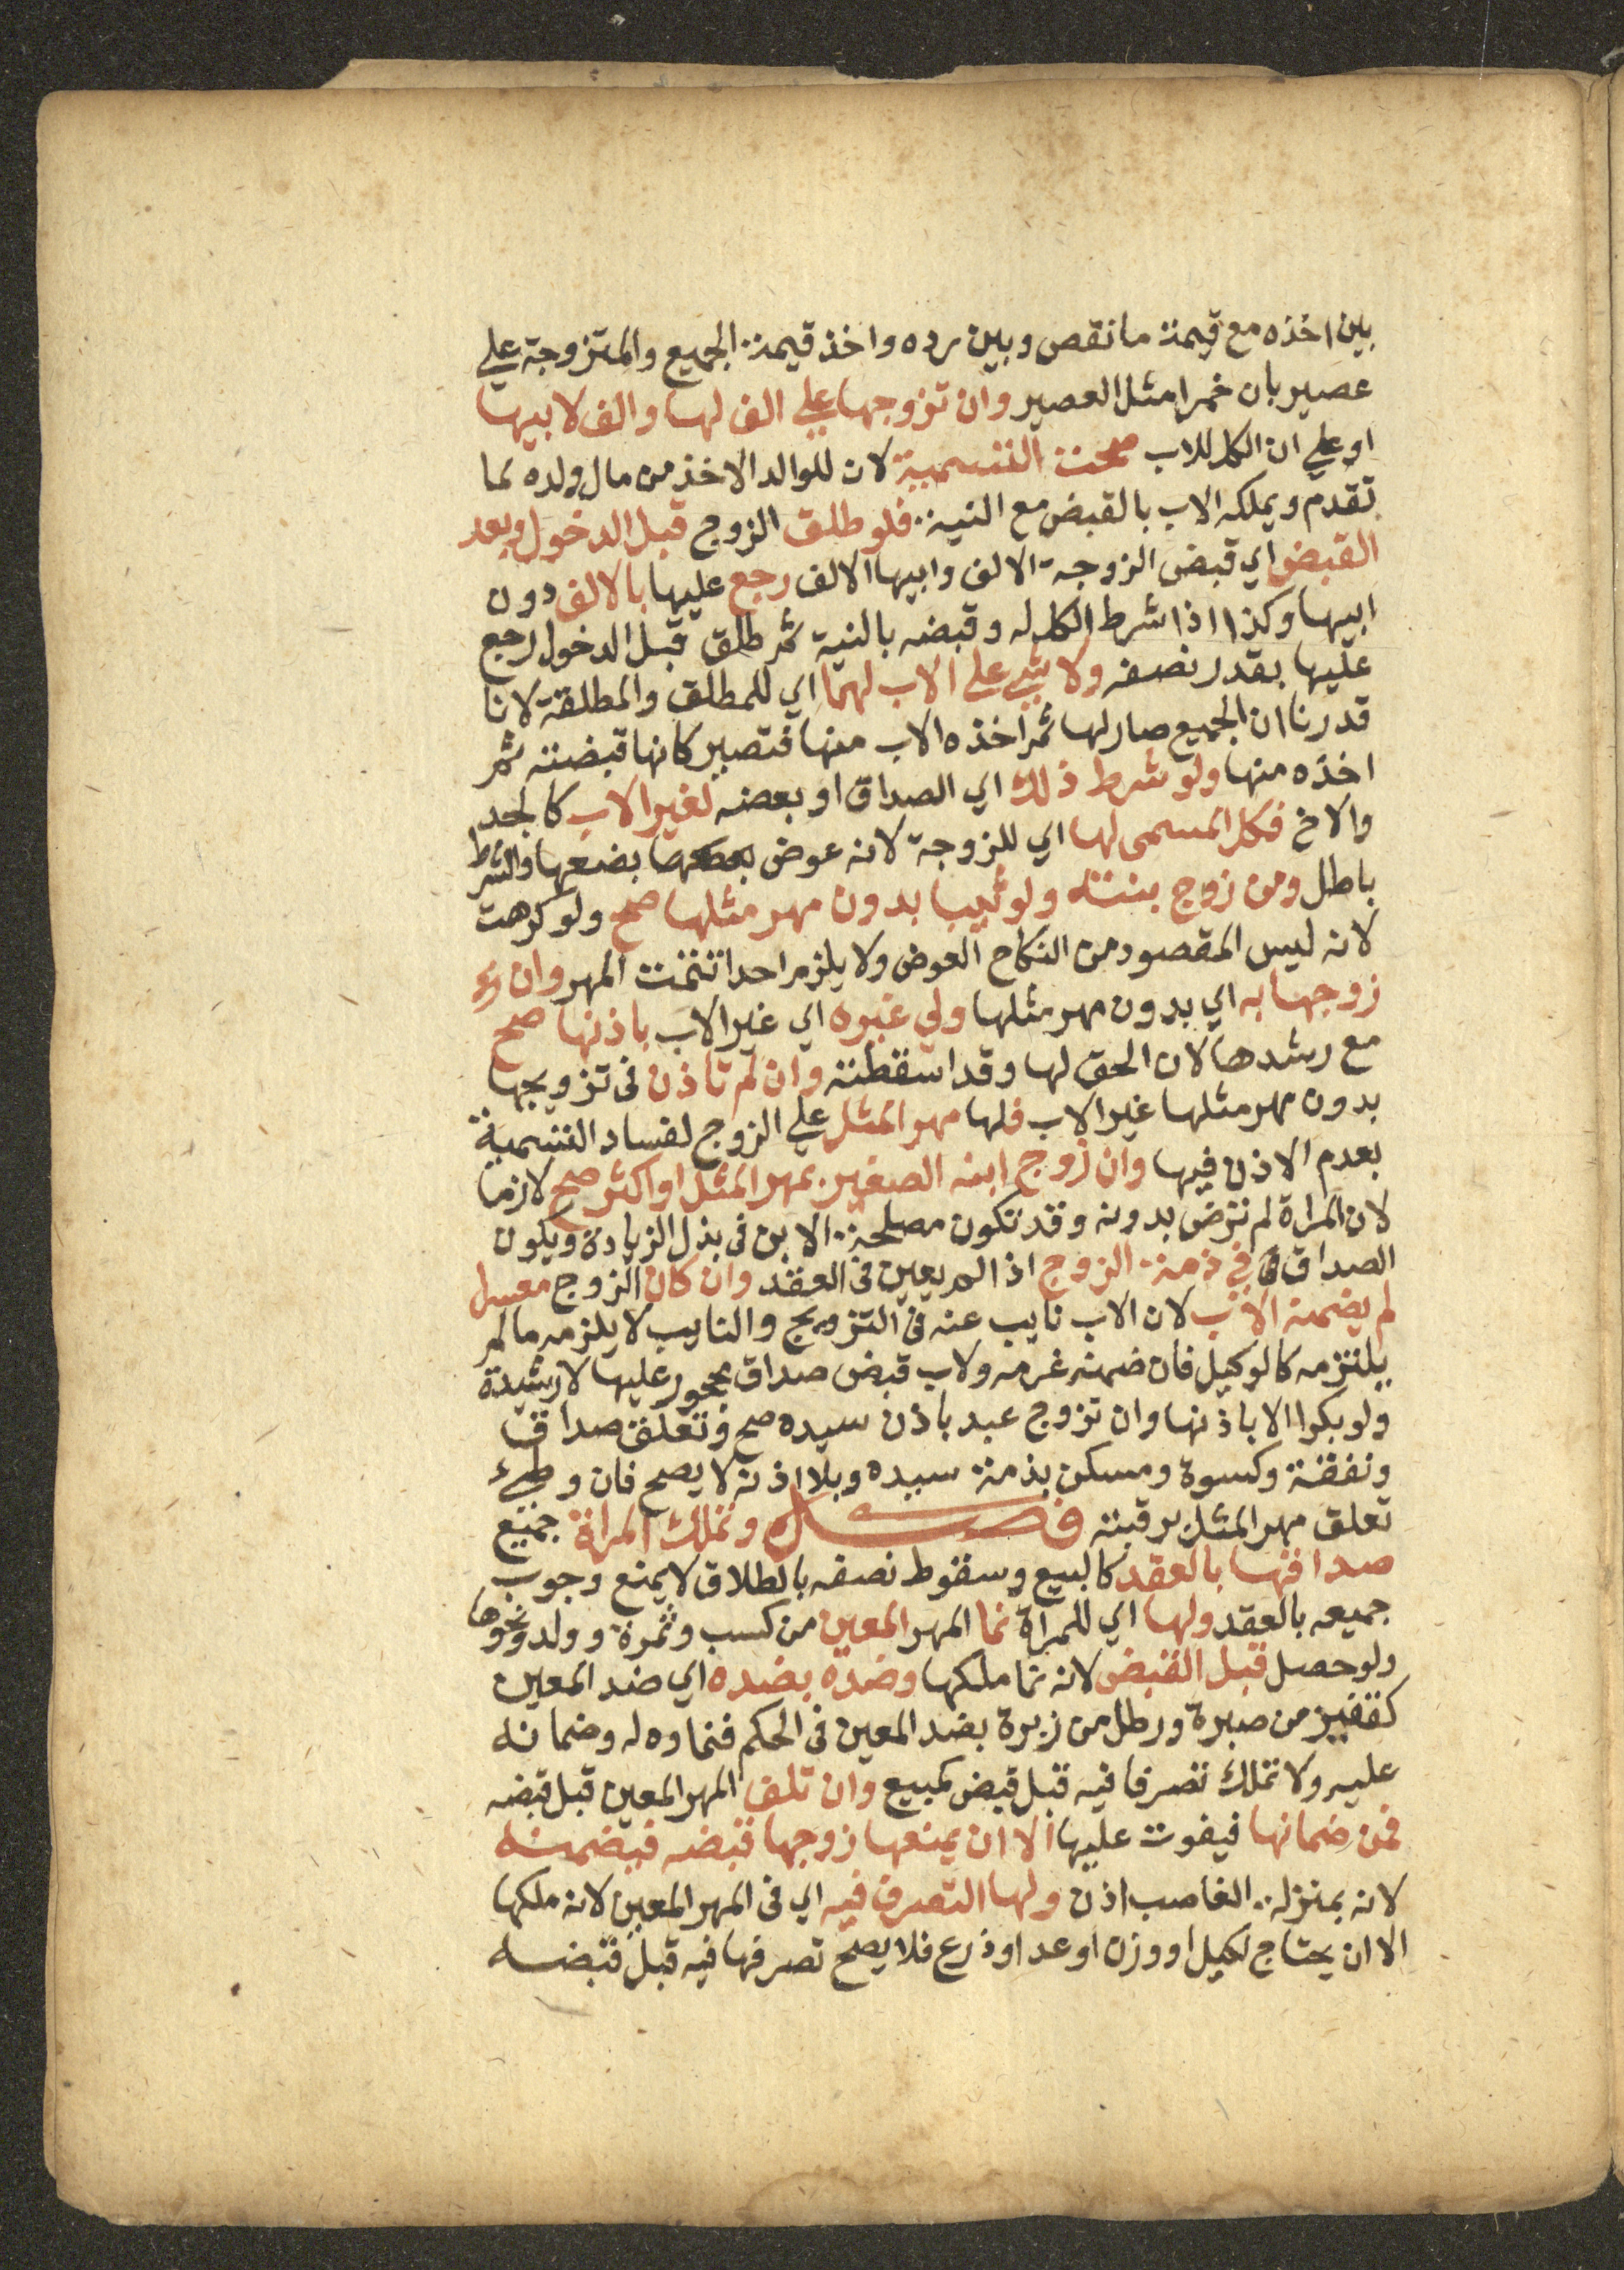 بين اخذه مع قيمة ما نقص وبين رده واخذ قيمة الجميع والمتزوجة علي
عصير بان خمرا مثل العصير وان تزوجها علي الف لها والف لابيها
او علي ان الكل للاب صحت التسمية لان للوالد الاخذ من مال ولده لما
تقدم ويملكه الاب بالقبض مع النية فلو طلق الزوج قبل الدخول وبعد
القبض اي قبض الزوجة الالف وابيها الالف رجع عليها بالالف دون
ابيها وكذا اذا شرط الكل له وقبضه بالنية ثم طلق قبل الدخول رجع
عليها بقدر نصفه ولا شي على الاب لهما اي للمطلق والمطلقة لانا
قدرنا ان الجميع صار لها ثم اخذه الاب منها فتصير كانها قبضته ثم
اخذه منها ولو شرط ذلك اي الصداق او بعضه لغير الاب كالجد
والاخ فكل المسمى لها اي للزوجة لانه عوض بضعها والشرط
باطل ومن زوج بنته ولو ثيبا بدون مهر مثلها صح ولو كرهت
لانه ليس المقصود من النكاح العوض ولا يلزم احدا تتمت المهر وان
زوجها به اي بدون مهر مثلها ولي غيره اي غير الاب باذنها صح
مع رشدها لان الحق لها وقد اسقطته وان لم تاذن فى تزويجها
بدون مهر مثلها غير الاب فلها مهر المثل علي الزوج لفساد التسمية
بعدم الاذن فيها وان زوج ابنه الصغير بمهر المثل او اكثر صح لازما
لان المراة لم ترض بدونه وقد تكون مصلحة الابن فى بذل الزيادة ويكون
الصداق في ذمة الزوج اذا لم يعين فى العقد وان كان الزوج معسل
لم يضمنه الاب لان الاب نايب عنه فى التزويج والنايب لا يلزمه ما لم
يلتزمه كالوكيل فان ضمنه غرمه ولاب قبض صداق محجور عليها لا رشيدة
ولو بكرا الا باذنها وان تزوج عبد باذن سيده صح وتعلق صداق
ونفقة وكسوة ومسكن بذمة سيده وبلا اذنه لا يصح فان وطيء
تعلق مهر المثل برقبته فصل وتملك المراة جميع
صداقها بالعقد كالبيع وسقوط نصفه بالطلاق لا يمنع وجوب
جميعه بالعقد ولها اي للمراة نما المهر المعين من كسب وثمرة وولد ونحوها
ولو حصل قبل القبض لانه نما ملكها وضده بضده اي ضد المعين
كقفيز من صبرة ورطل من زبرة بضد المعين فى الحكم فنماوه له وضمانه
عليه ولا تملك تصرفا فيه قبل قبض كمبيع وان تلف المهر المعين قبل قبضه
فمن ضمانها فيفوت عليها الا ان يمنعها زوجها قبضه فيضمنه
لانه بمنزلة الغاصب اذن ولها التصرف فيه اي فى المهر المعين لانه ملكها
الا ان يحتاج لكيل او وزن او عد او ذرع فلا يصح تصرفها فيه قبل قبضه